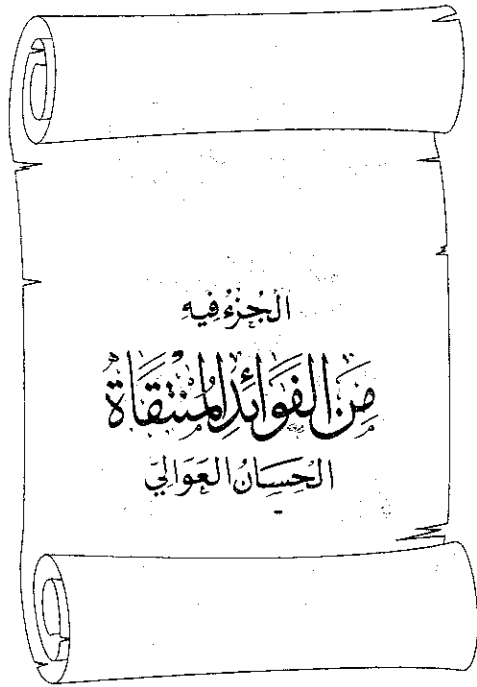 الجُزْءُ فِيهِ
مِنَ الْفَوَائِدِ الْمُنْتَقَاةِ
الحِسَانُ العَوَالِيّ